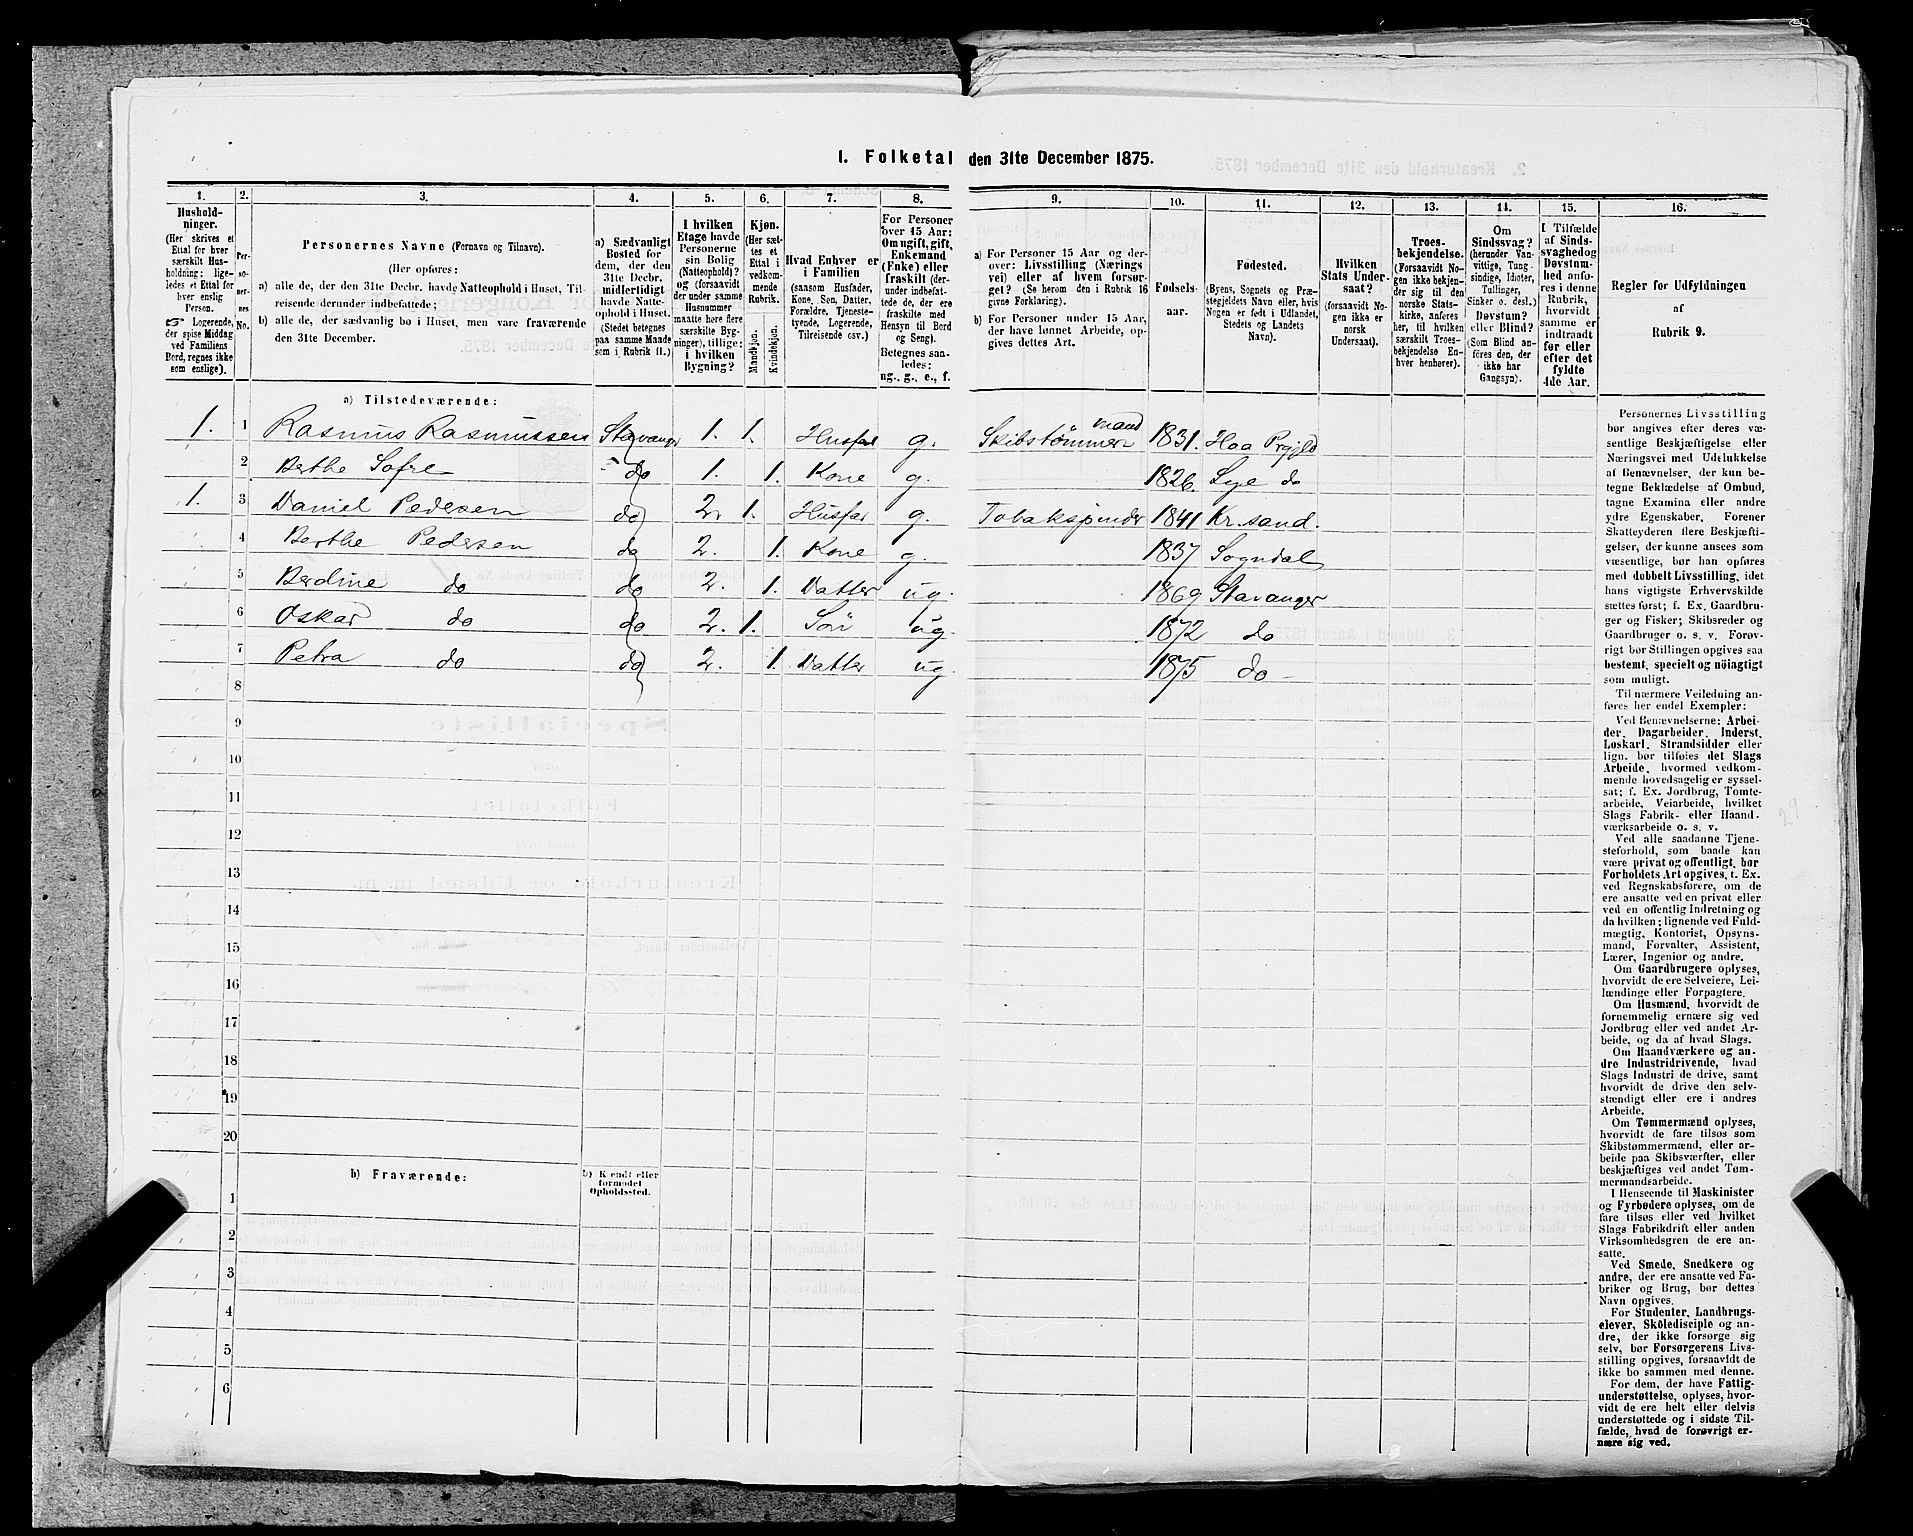 1. Folketal den 31te December 1875.
1. 2. 3. 4. 5. 6. 7. 8. 9. 10. 11. 12. 13. 14. 15. 16.
Hushold-
ninger.
(Her skrives et
Ettal for hver
særskilt Hus-
holdning; lige-
ledes et Ettal for
hver enslig
Person.
☞ Logerende,
der spise Middag
ved Familiens
Bord, regnes ikke
som enslige).
Per-
so-
ner-
nes
No.
Personernes Navne (Fornavn og Tilnavn).
(Her opføres:
a) alle de, der den 31te Decbr. havde Natteophold i Huset, Til-
reisende derunder indbefattede;
b) alle de, der sædvanlig bo i Huset, men vare fraværende
den 31te December.
a) Sædvanligt
Bosted for
dem, der den
31te Decbr.
midlertidigt
havde Natte-
ophold i Huset.
(Stedet betegnes
paa samme Maade
som i Rubrik 11.)
I hvilken
Etage havde
Personerne
sin Bolig
(Natteophold)?
og (forsaavidt
der under samme
Husnummer
maatte høre flere
særskilte Byg-
ninger), tillige:
i hvilken
Bygning?
Kjøn.
(Her sæt-
tes et
Ettal i
vedkom-
mende
Rubrik.
Mandkjøn.
Kvindekjøn.
Hvad Enhver er
i Familien
(saasom Husfader,
Kone, Søn, Datter,
Forældre, Tjeneste-
tyende, Logerende,
Tilreisende osv.)
For Personer
over 15 Aar:
Om ugift, gift,
Enkemand
(Enke) eller
fraskilt (der-
under indbefat-
tede de, der ere
fraskilte med
Hensyn til Bord
og Seng).
Betegnes saa-
ledes:
ug., g., e., f.
a) For Personer 15 Aar og der-
over: Livsstilling (Nærings
vei) eller af hvem forsør-
get? (Se herom den i Rubrik 16
givne Forklaring).
b) For Personer under 15 Aar,
der have lønnet Arbeide, op-
gives dettes Art.
Fødsels-
aar.
Fødested.
(Byens, Sognets og Præ-
stegjeldets Navn eller, hvis
Nogen er født i Udlandet,
Stedets og Landets
Navn).
Hvilken
Stats Under-
saat?
(forsaavidt No-
gen ikke er
norsk
Undersaat).
Troes-
bekjendelse.
(Forsaavidt No-
gen ikke bekjen-
der sig til den
norske Stats-
kirke, anføres
her, til hvilken
særskilt Troes-
bekjendelse En-
hver henhører).
Om
Sindssvag?
(herunder Van-
vittige, Tung-
sindige, Idioter,
Tullinger,
Sinker o. desl.)
Døvstum?
eller Blind?
(Som Blind an-
føres den, der
ikke har
Gangsyn).
I Tilfælde
af Sinds-
svaghed og
Døvstum-
hed anfø-
res i denne
Rubrik,
hvorvidt
samme er
indtraadt
før eller
efter det
fyldte
4de Aar.
Regler for Udfyldningen
af
Rubrik 9.
a) Tilstedeværende:
1. 1 Rasmus Rasmussen Stavanger 1. 1. Husfar g. Skibstømmermand 1831. Haa Prgjld
2 Berthe Sofre do 1. 1. Kone g. 1826. Lye do
1. 3 Daniel Pedersen do 2. 1. Husfar g. Tobakspinder 1841 Kr.sand.
4 Berthe Pedersen do 2. 1. Kone g. 1837 Sogndal
5 Berdine do do 2. 1. Datter ug. 1869 Stavanger
6 Oskar do do 2. 1. Søn ug. 1872 do
7 Petra do do 2. 1. Datter ug 1875 do
8
9
10
11
12
13
14
15
16
17
18
19
20
b) Fraværende:
b) Kjendt eller
formodet
Opholdssted.
1
2
3
4
5
6
Personernes Livsstilling
bør angives efter deres væ-
sentlige Beskjæftigelse eller
Næringsvei med Udelukkelse
af Benævnelser, der kun be-
tegne Beklædelse af Ombud,
tagne Examina eller andre
ydre Egenskaber. Forener
Skatteyderen flere Beskjæfti-
gelser, der kunne ansees som
væsentlige, bør han opføres
med dobbelt Livsstilling, idet
hans vigtigste Erhvervskilde
sættes først; f. Ex. Gaardbru-
ger og Fisker; Skibsreder og
Gaardbruger o. s. v. Forøv-
rigt bør Stillingen opgives saa
bestemt, specielt og nöiagtigt
som muligt.
Til nærmere Veiledning an-
føres her endel Exempler:
Ved Benævnelserne: Arbei-
der, Dagarbeider, Inderst,
Løskarl, Strandsidder eller
lign. bør tilføies det Slags
Arbeide, hvormed vedkom-
mende hovedsagelig er syssel-
sat; f. Ex. Jordbrug, Tomte-
arbeide, Veiarbeide, hvilket
Slags Fabrik- eller Haand-
værksarbeide o. s. v.
Ved alle saadanne Tjene-
steforhold, som baade kan
være privat og offentligt, bør
Forholdets Art opgives, t. Ex.
ved Regnskabsførere, om de
ere ansatte ved en privat eller
ved en offentlig Indretning og
da hvilken; lignende ved Fuld-
mægtig, Kontorist, Opsyns-
mand, Forvalter, Assistent,
Lærer, Ingeniør og andre.
Om Gaardbrugere oplyses,
hvorvidt de ere Selveiere, Lei-
lændinge eller Forpagtere.
Om Husmænd, hvorvidt de
fornemmelig ernære sig ved
Jordbrug eller ved andet Ar-
beide, og da af hvad Slags.
Om Haandværkere og an-
dre Industridrivende, hvad
Slags Industri de drive, samt
hvorvidt de drive den selv-
stændigt eller ere i andres
Arbeide.
Om Tømmermænd oplyses,
hvorvidt de fare tilsøs som
Skibstømmermænd, eller ar-
beide paa Skibsværfter, eller
beskjæftiges ved andet Tøm-
mermandsarbeide.
I Henseende til Maskinister
og Fyrbødere oplyses, om de
fare tilsøs eller ved hvilket
Slags Fabrikdrift eller anden
Virksomhedsgren de ere an-
satte.
Ved Smede, Snedkere og
andre, der ere ansatte ved Fa-
briker og Brug, bør dettes
Navn opgives.
For Studenter, Landbrugs-
elever, Skôledisciple og an-
dre, der ikke forsørge sig
selv, bør Forsørgerens Livs-
stilling opgives, forsaavidt de
ikke bo sammen med denne.
For dem, der have Fattig-
understøttelse, oplyses, hvor-
vidt de ere helt eller delvis
understøttede og i sidste Til-
fælde, hvad de forøvrigt er-
nære sig ved.